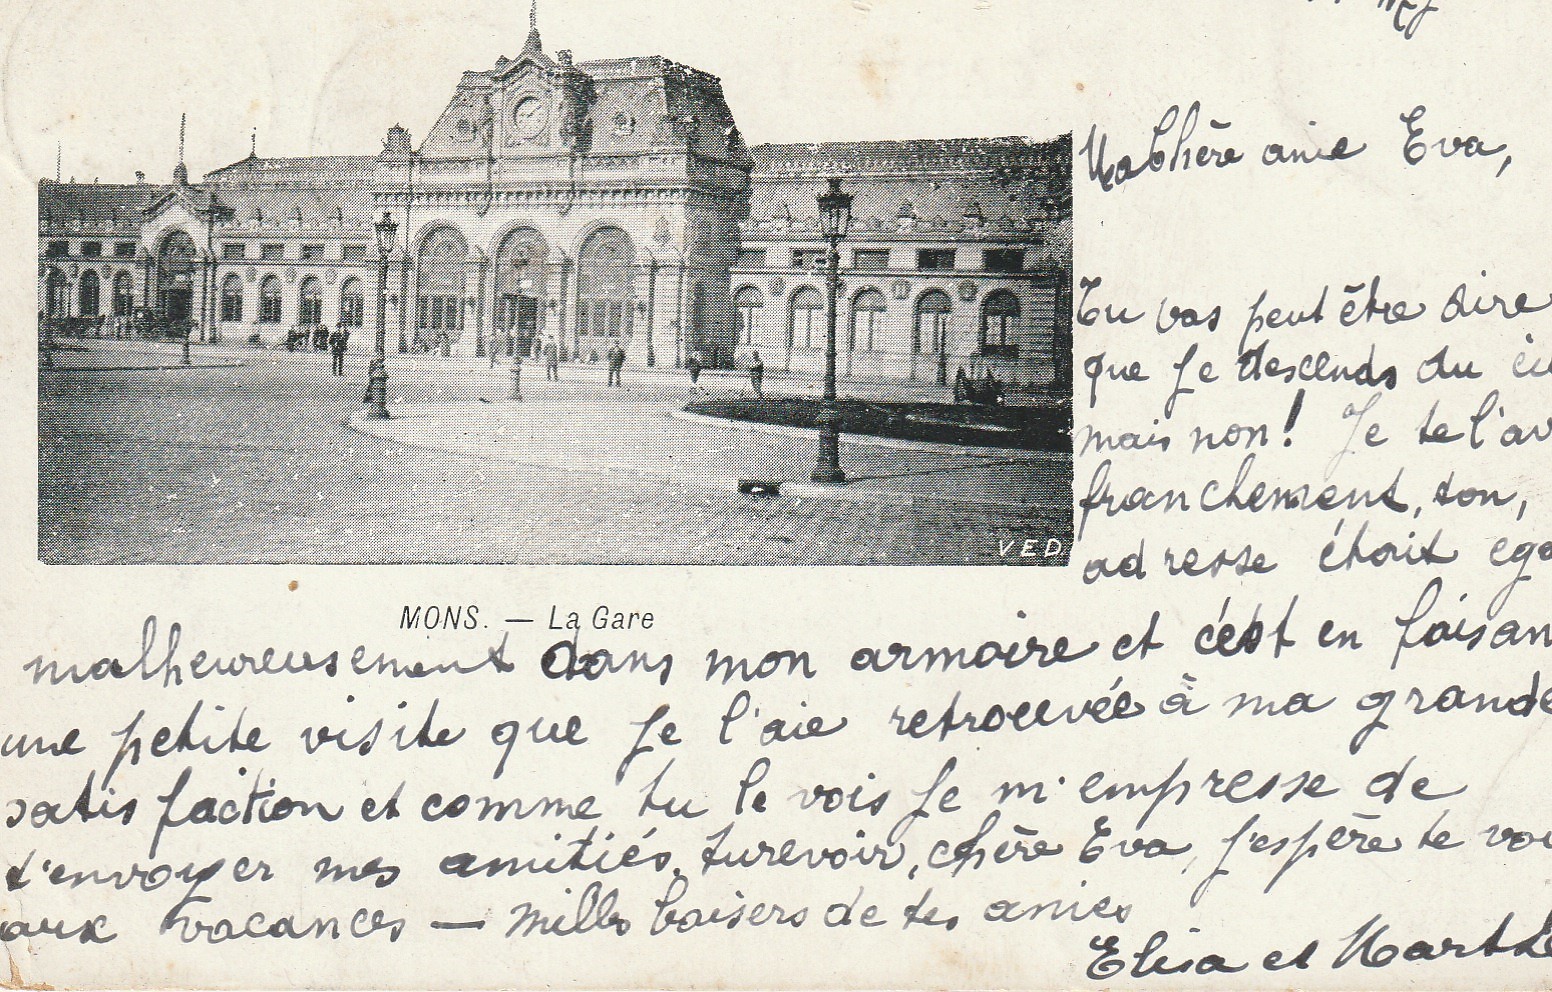 Ma chère amie Eva,
Tu vas peut être dire
que je descends du
mais non! Je te l'av
franchement, ton,
adresse était ega
VED
MONS. — La Gare
malheureusement dans mon armoire et c'est en faisan
une petite visite que je l'aie retrouvée à ma grande
satisfaction et comme tu le vois je m'empresse de
t'envoyer mes amitiés. Aurevoir, chère Eva, j'espère te voi
aux vacances — Mille baisers de tes amies
Elisa et Marthe